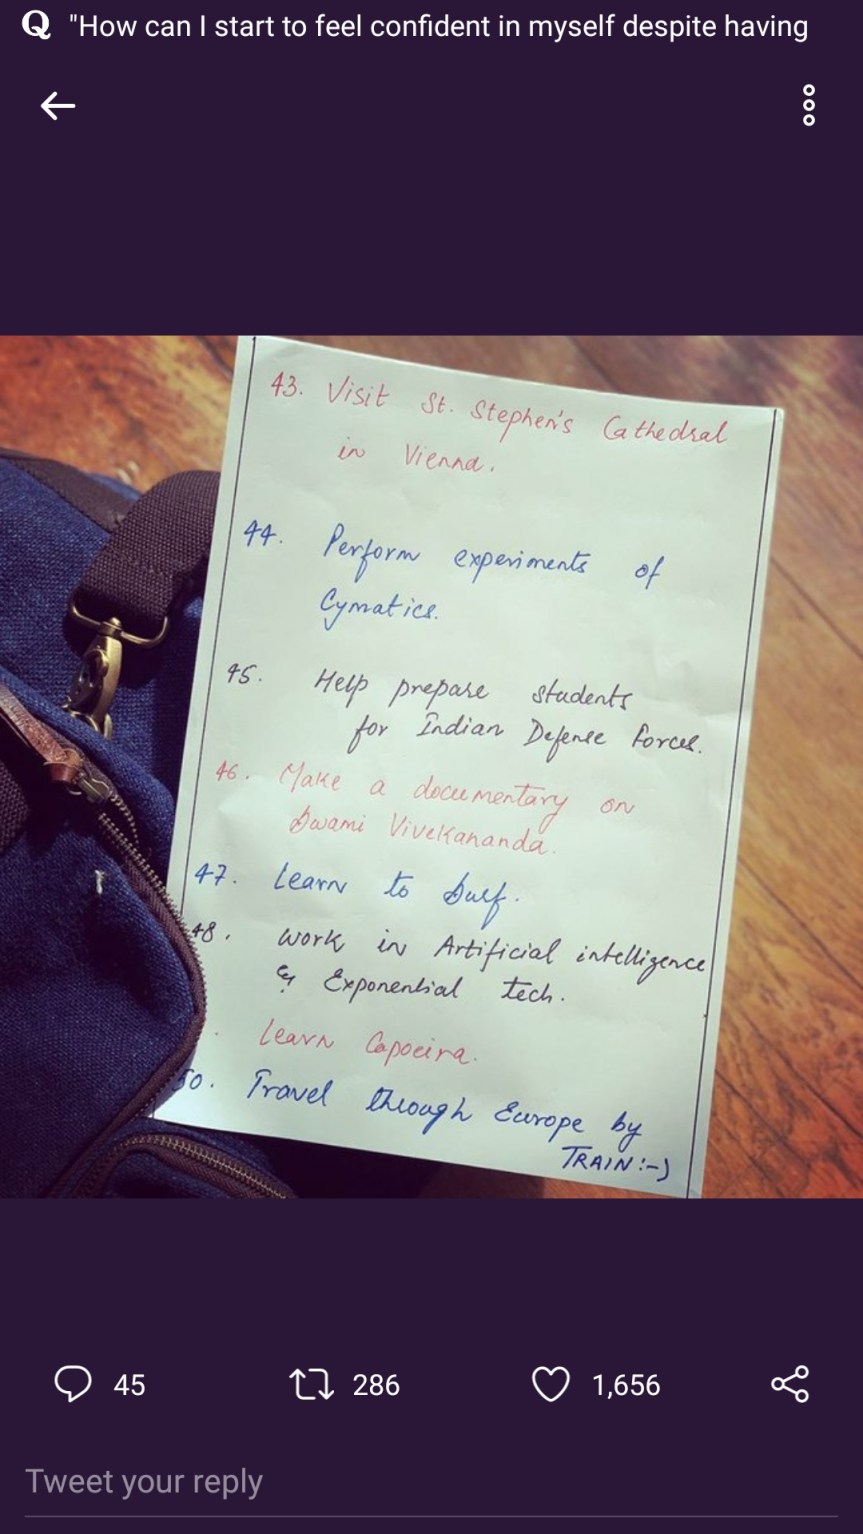 Q "How can I start to feel confident in myself despite having
43. Visit St. Stephen's Cathedral
in Vienna.
44. Perform experiments of
Cymatics.
45. Help prepare students
for Indian Defense Forces.
46. Make a documentary on
Swami Vivekananda.
47. Learn to Surf.
48. Work in Artificial intelligence
& Exponential tech.
. Learn Capoeira.
50. Travel through Europe by
TRAIN :-)
45 286 1,656
Tweet your reply